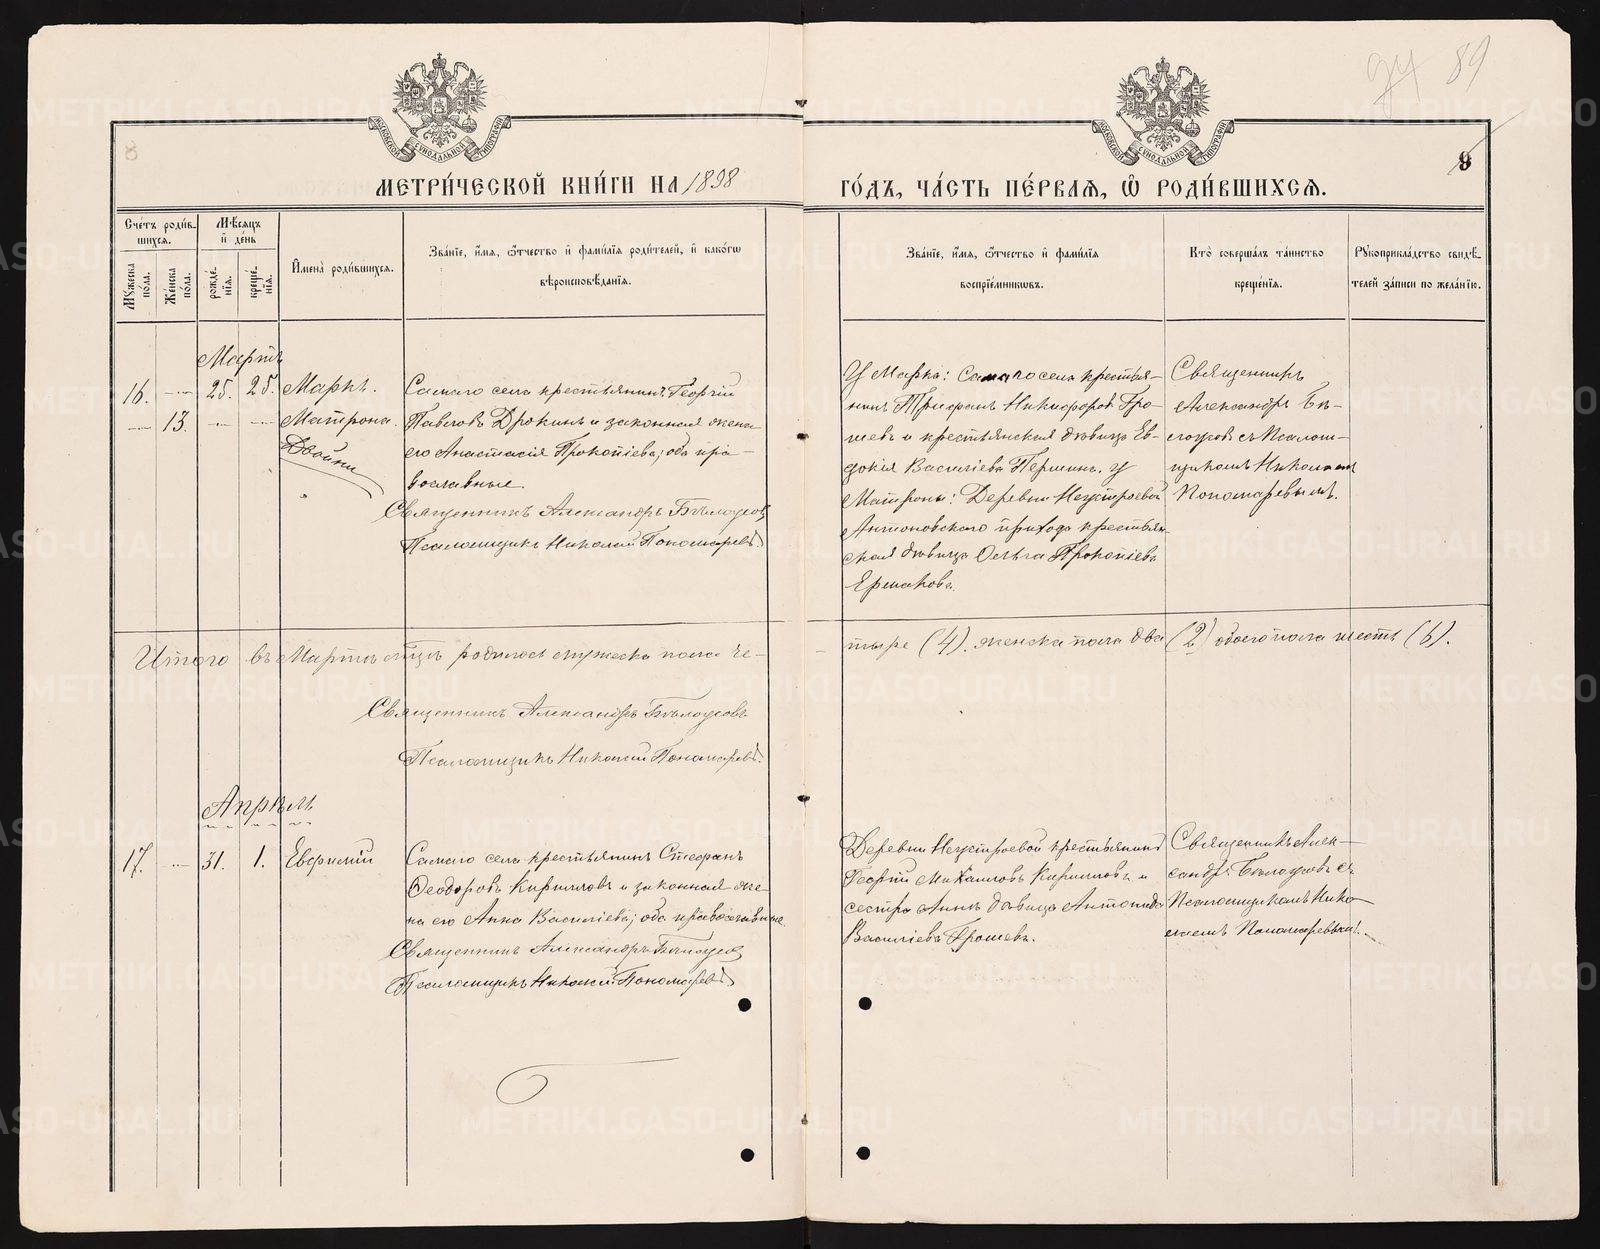 74 89
8
9
МЕТРИ́ЧЕСКОЙ КНИ́ГИ НА 1898
ГО́ДЪ, ЧА́СТЬ ПЕ́РВАѦ, Ѡ҆ РОДИ́ВШИХСѦ.
МОСКОВСКОЙ СѴНОДАЛЬНОЙ ТИПОГРАФІИ
МОСКОВСКОЙ СѴНОДАЛЬНОЙ ТИПОГРАФІИ
Сче́тъ роди́вшихсѧ.
Мꙋ́жеска по́ла.
Же́нска по́ла.
Мѣ́сѧцъ и҆ де́нь
рожде́нїѧ.
креще́нїѧ.
И҆мена̀ роди́вшихсѧ.
Зва́нїе, и҆́мѧ, ѻ҆́тчество и҆ фами́лїѧ роди́телей, и҆ како́гѡ
вѣроисповѣ́данїѧ.
Зва́нїе, и҆́мѧ, ѻ҆́тчество и҆ фами́лїѧ
воспрїе́мникѡвъ.
Кто̀ соверша́лъ та́инство
креще́нїѧ.
Рꙋкоприкла́дство свидѣ́-
телей за́писи по жела́нїю.
Мартъ
16. — 25. 25. Маркъ.
— 13. — — Матрона.
Двойни
Самаго села крестьянинъ Георгій
Павловъ Дрокинъ и законная жена
его Анастасія Прокопіева; оба пра-
вославные.
Священникъ Александръ Бѣлоусовъ
Псаломщикъ Николай Пономаревъ
У Марка: Самаго села крестья-
нинъ Трифонъ Никифоровъ Гро-
шевъ и крестьянская дѣвица Ев-
докія Васильева Першина. У
Матроны: Деревни
Антоновскаго прихода крестьян-
ская дѣвица Ольга Прокопіева
Ермакова.
Священникъ
Александръ Бѣ-
лоусовъ съ Псалом-
щикомъ Николаемъ
Пономаревымъ.
Итого въ Мартѣ мѣсяцѣ родилось мужеска пола че-
тыре (4). женска пола два (2) обоего пола шесть (6).
Священникъ Александръ Бѣлоусовъ
Псаломщикъ Николай Пономаревъ.
Апрѣль
17. — 31. 1. Евфимій
Самаго села крестьянинъ Стефанъ
Ѳеодоровъ Кирилловъ и законная же-
на его Анна Васильева; оба православные.
Священникъ Александръ Бѣлоусовъ
Псаломщикъ Николай Пономаревъ
Деревни крестьянинъ
Георгій Михаиловъ Кирилловъ и
сестра Анны дѣвица Антонида
Васильева Грошева.
Священникъ Алек-
сандръ Бѣлоусовъ съ
Псаломщикомъ Нико-
лаемъ Пономаревымъ.
METRIKI.GASO-URAL.RU